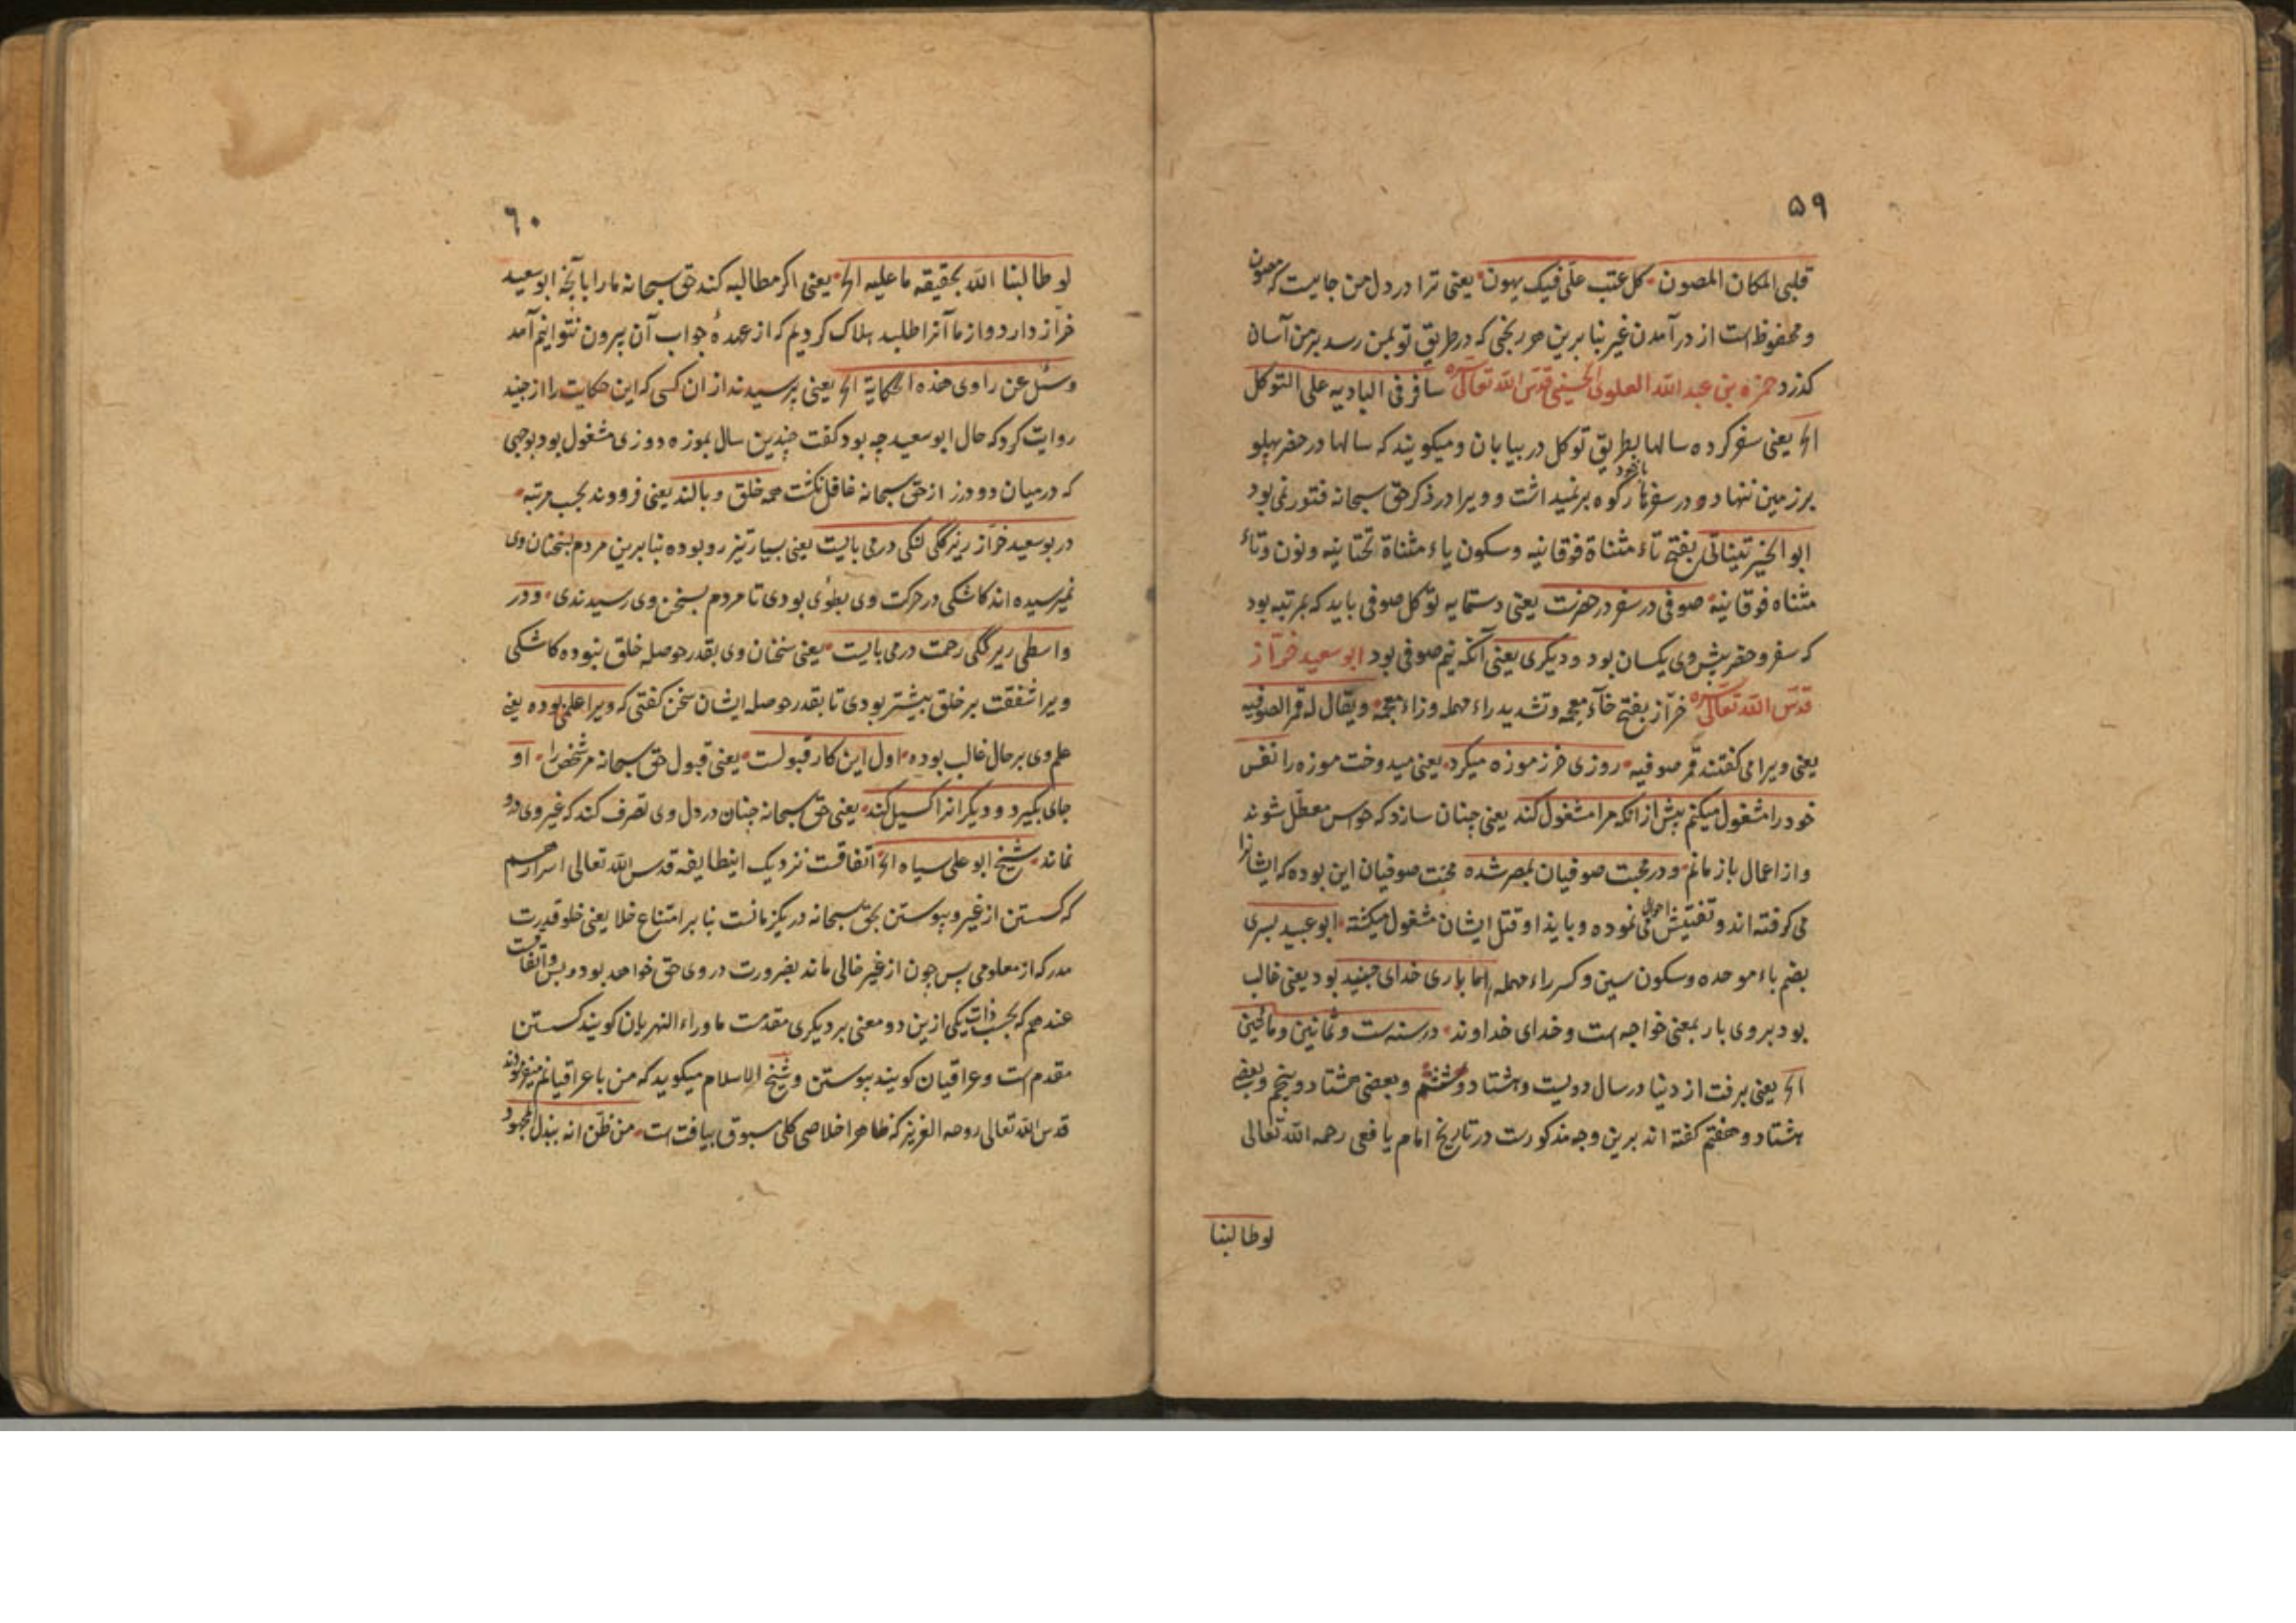 ۵۹
قلبی المکان المصون کل عتب علّی فیک یهون یعنی ترا در دل من جاییست که مصون
و محفوظ است از درآمدن غیر بنا برین هر رنجی که در طریق تو بمن رسد بر من آسان
کذرد حمزه بن عبد الله العلوی الحسینی قدّس الله تعالی سره سافر فی البادیه علی التوکل
الخ یعنی سفر کرده سالها بطریق توکل در بیابان و میکویند که سالها در حضر پهلو
بر زمین ننهاد و در سفرها با خود رکوه برنمیداشت و ویرا در ذکر حق سبحانه فتور نمی بود
ابو الخیر تیناتی بفتح تاء مثناة فوقانیه و سکون یاء مثناة تحتانیه و نون و تاء
مثناه فوقانیه صوفی در سفر در حضرست یعنی دستمایه توکل صوفی باید که بمرتبه بود
که سفر و حضر پیش وی یکسان بود و دیکری یعنی آنکه نیم صوفی بود ابو سعید خرّاز
قدّس الله تعالی سره خرّاز بفتح خاء معجمه و تشدید راء مهمله و زاء معجمه و یقال له قمر الصوفیه
یعنی ویرا می کفتند قمر صوفیه روزی خرز موزه میکرد یعنی میدوخت موزه را نفس
خود را مشغول میکنم پیش از انکه مرا مشغول کند یعنی چنان سازد که حواس معطّل شوند
و از اعمال باز مانم و در محبت صوفیان بمصر شده محنت صوفیان این بوده که ایشانرا
می کرفته اند و تفتیش احوال می نموده و بایذا و قتل ایشان مشغول میکشته ابو عبید بسری
بضم باء موحده و سکون سین و کسر راء مهمله اما باری خدای جنید بود یعنی غالب
بود بر وی بار بمعنی خواجه است و خدای خداوند در سنه ست و ثمانین و مائتین
الخ یعنی برفت از دنیا در سال دویست و هشتاد و ششم و بعضی هشتاد و پنجم و بعضی
هشتاد و هفتم کفته اند برین وجه مذکورست در تاریخ امام یافعی رحمه الله تعالی
لو طالبنا
۶۰
لو طالبنا الله بحقیقه ما علیه الخ یعنی اکر مطالبه کند حق سبحانه ما را بآنچه ابو سعید
خرّاز دارد و از ما آنرا طلبد هلاک کردیم که از عهدهٔ جواب آن بیرون نتوانیم آمد
و سئل عن راوی هذه الحکایة الخ یعنی پرسیدند از ان کسی که این حکایت را از جنید
روایت کرد که حال ابو سعید چه بود کفت چندین سال بموزه دوزی مشغول بود بوجهی
که در میان دو درز از حق سبحانه غافل نکشت همه خلق و بالند یعنی فرودند بحسب مرتبه
در بو سعید خرّاز ریزکی لنکی درمی بایست یعنی بسیار تیز رو بوده بنا برین مردم بسخنان وی
نمیرسیده اند کاشکی در حرکت وی بطوئی بودی تا مردم بسخن وی رسیدندی و در
واسطی ریزکی رحمت درمی بایست یعنی سخنان وی بقدر حوصله خلق نبوده کاشکی
ویرا شفقت بر خلق بیشتر بودی تا بقدر حوصله ایشان سخن کفتی که ویرا علمی بوده یعنی
علم وی بر حال غالب بوده اول این کار قبولست یعنی قبول حق سبحانه مر شخص را او
جای بکیرد و دیکرانرا کسیل کند یعنی حق سبحانه چنان در دل وی تصرف کند که غیر وی درو
نماند شیخ ابو علی سیاه الخ اتفاقست نزدیک اینطایفه قدس الله تعالی اسرارهم
که کسستن از غیر و پیوستن بحق سبحانه در یکزمانست بنا بر امتناع خلا یعنی خلو قدرت
مدرکه از معلومی پس چون از غیر خالی ماند بضرورت در وی حق خواهد بود و بس و اتفاقست
عندهم که بحسب ذات یکی ازین دو معنی بر دیکری مقدمست ماوراء النهریان کویند کسستن
مقدم است و عراقیان کویند پیوستن و شیخ الاسلام میکوید که من با عراقیانم میفرمودند
قدس الله تعالی روحه العزیز که ظاهرا خلاصی کلی مسبوق بیافت است من ظن انه ببذل المجهود